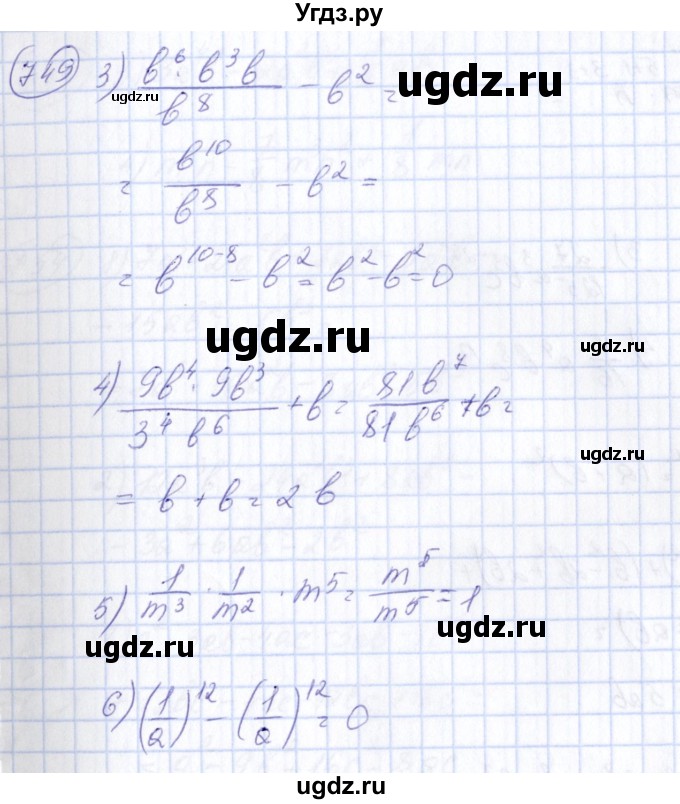 Угдз.ру
749 3) (b⁶ · b³b)/b⁸ − b² =
ugdz.ru
ugdz.ru
= b¹⁰/b⁸ − b² =
ugdz.ru
= b¹⁰⁻⁸ − b² = b² − b² = 0
ugdz.ru
4) (9b⁴ · 9b³)/(3⁴b⁶) + b = 81b⁷/81b⁶ + b =
ugdz.ru
= b + b = 2b
5) 1/m³ · 1/m² · m⁵ = m⁵/m⁵ = 1
ugdz.ru
ugdz.ru
6) (1/2)¹² − (1/2)¹² = 0
ugdz.ru
ugdz.ru